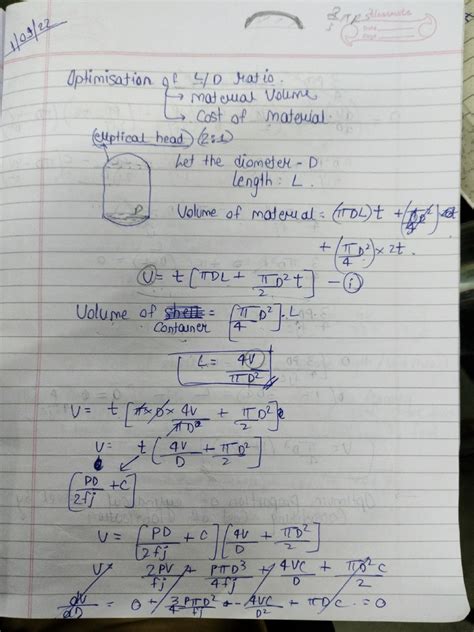 1/09/22
Optimisation of L/D ratio.
→ Material Volume
→ Cost of Material
(eliptical head) (2:1)
Let the diameter - D
length : L.
D
Volume of material = (πDL)t +
+ (π/4 D²) × 2t.
V = t [πDL + πD²/2 t] - (i)
Volume of container = [π/4 D²] . L
L = 4V/πD²
V = t [π × D × 4V/πD² + πD²/2]
V = t [4V/D + πD²/2]
[PD/2fj + C]
V = [PD/2fj + C] [4V/D + πD²/2]
V = 2PV/fj + PπD³/4fj + 4VC/D + πD²C/2
dV/dD = 0 + 3/4 PπD²/fj - 4VC/D² + πDC = 0